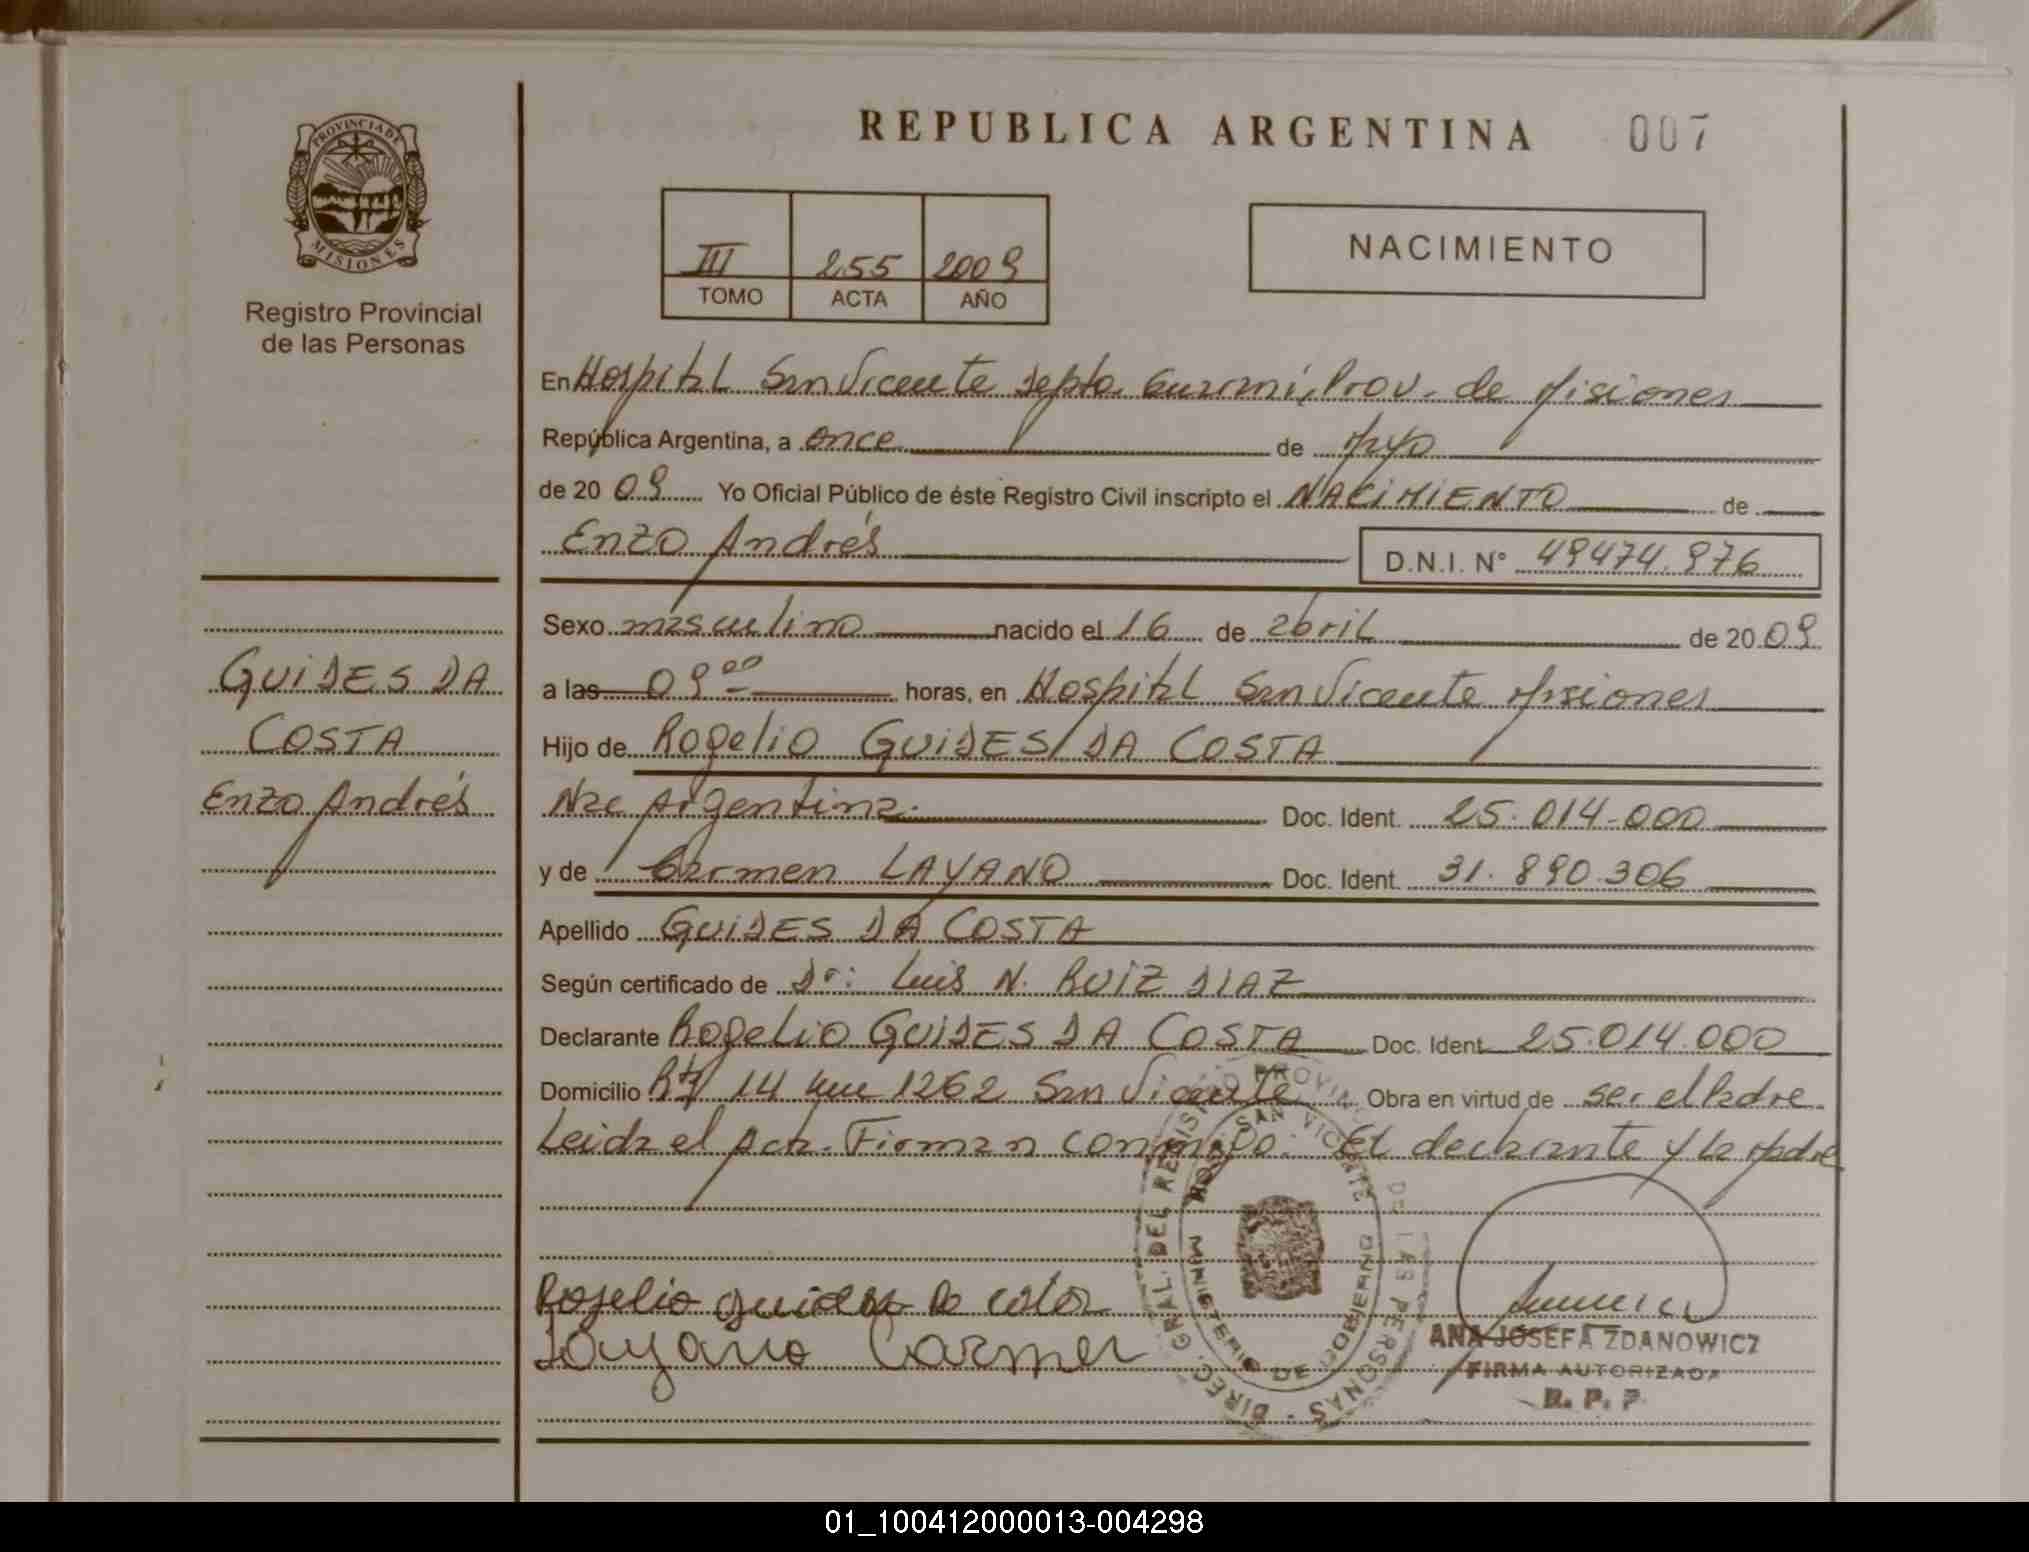 REPUBLICA ARGENTINA 007
PROVINCIA DE
MISIONES
Registro Provincial
de las Personas
III 255 2009
TOMO ACTA AÑO
NACIMIENTO
En Hospital San Vicente Depto. Guaraní, Prov. de Misiones
República Argentina, a once de Mayo
de 20 09 Yo Oficial Público de éste Registro Civil inscripto el NACIMIENTO de
Enzo Andrés D.N.I. N° 49474.976
Sexo masculino nacido el 16 de abril de 20 09
GUIDES DA
COSTA
Enzo Andrés
a las 09 00 horas, en Hospital San Vicente Misiones
Hijo de Rogelio GUIDES DA COSTA
Nac Argentina. Doc. Ident. 25.014-000
y de Carmen LAYANO Doc. Ident. 31.890.306
Apellido GUIDES DA COSTA
Según certificado de Dr: Luis N. RUIZ DIAZ
Declarante Rogelio GUIDES DA COSTA Doc. Ident. 25.014.000
Domicilio Rta 14 km 1262 San Vicente Obra en virtud de ser el Padre.
Leida el Acta. Firman conmigo. El declarante y la Madre
Rogelio guides Da
Layano Carmen
DIREC. GRAL. DEL REGISTRO PROVIN. DE LAS PERSONAS
SAN VICENTE
MINISTERIO DE GOBIERNO
ANA JOSEFA ZDANOWICZ
FIRMA AUTORIZADA
R. P. P.
01_100412000013-004298